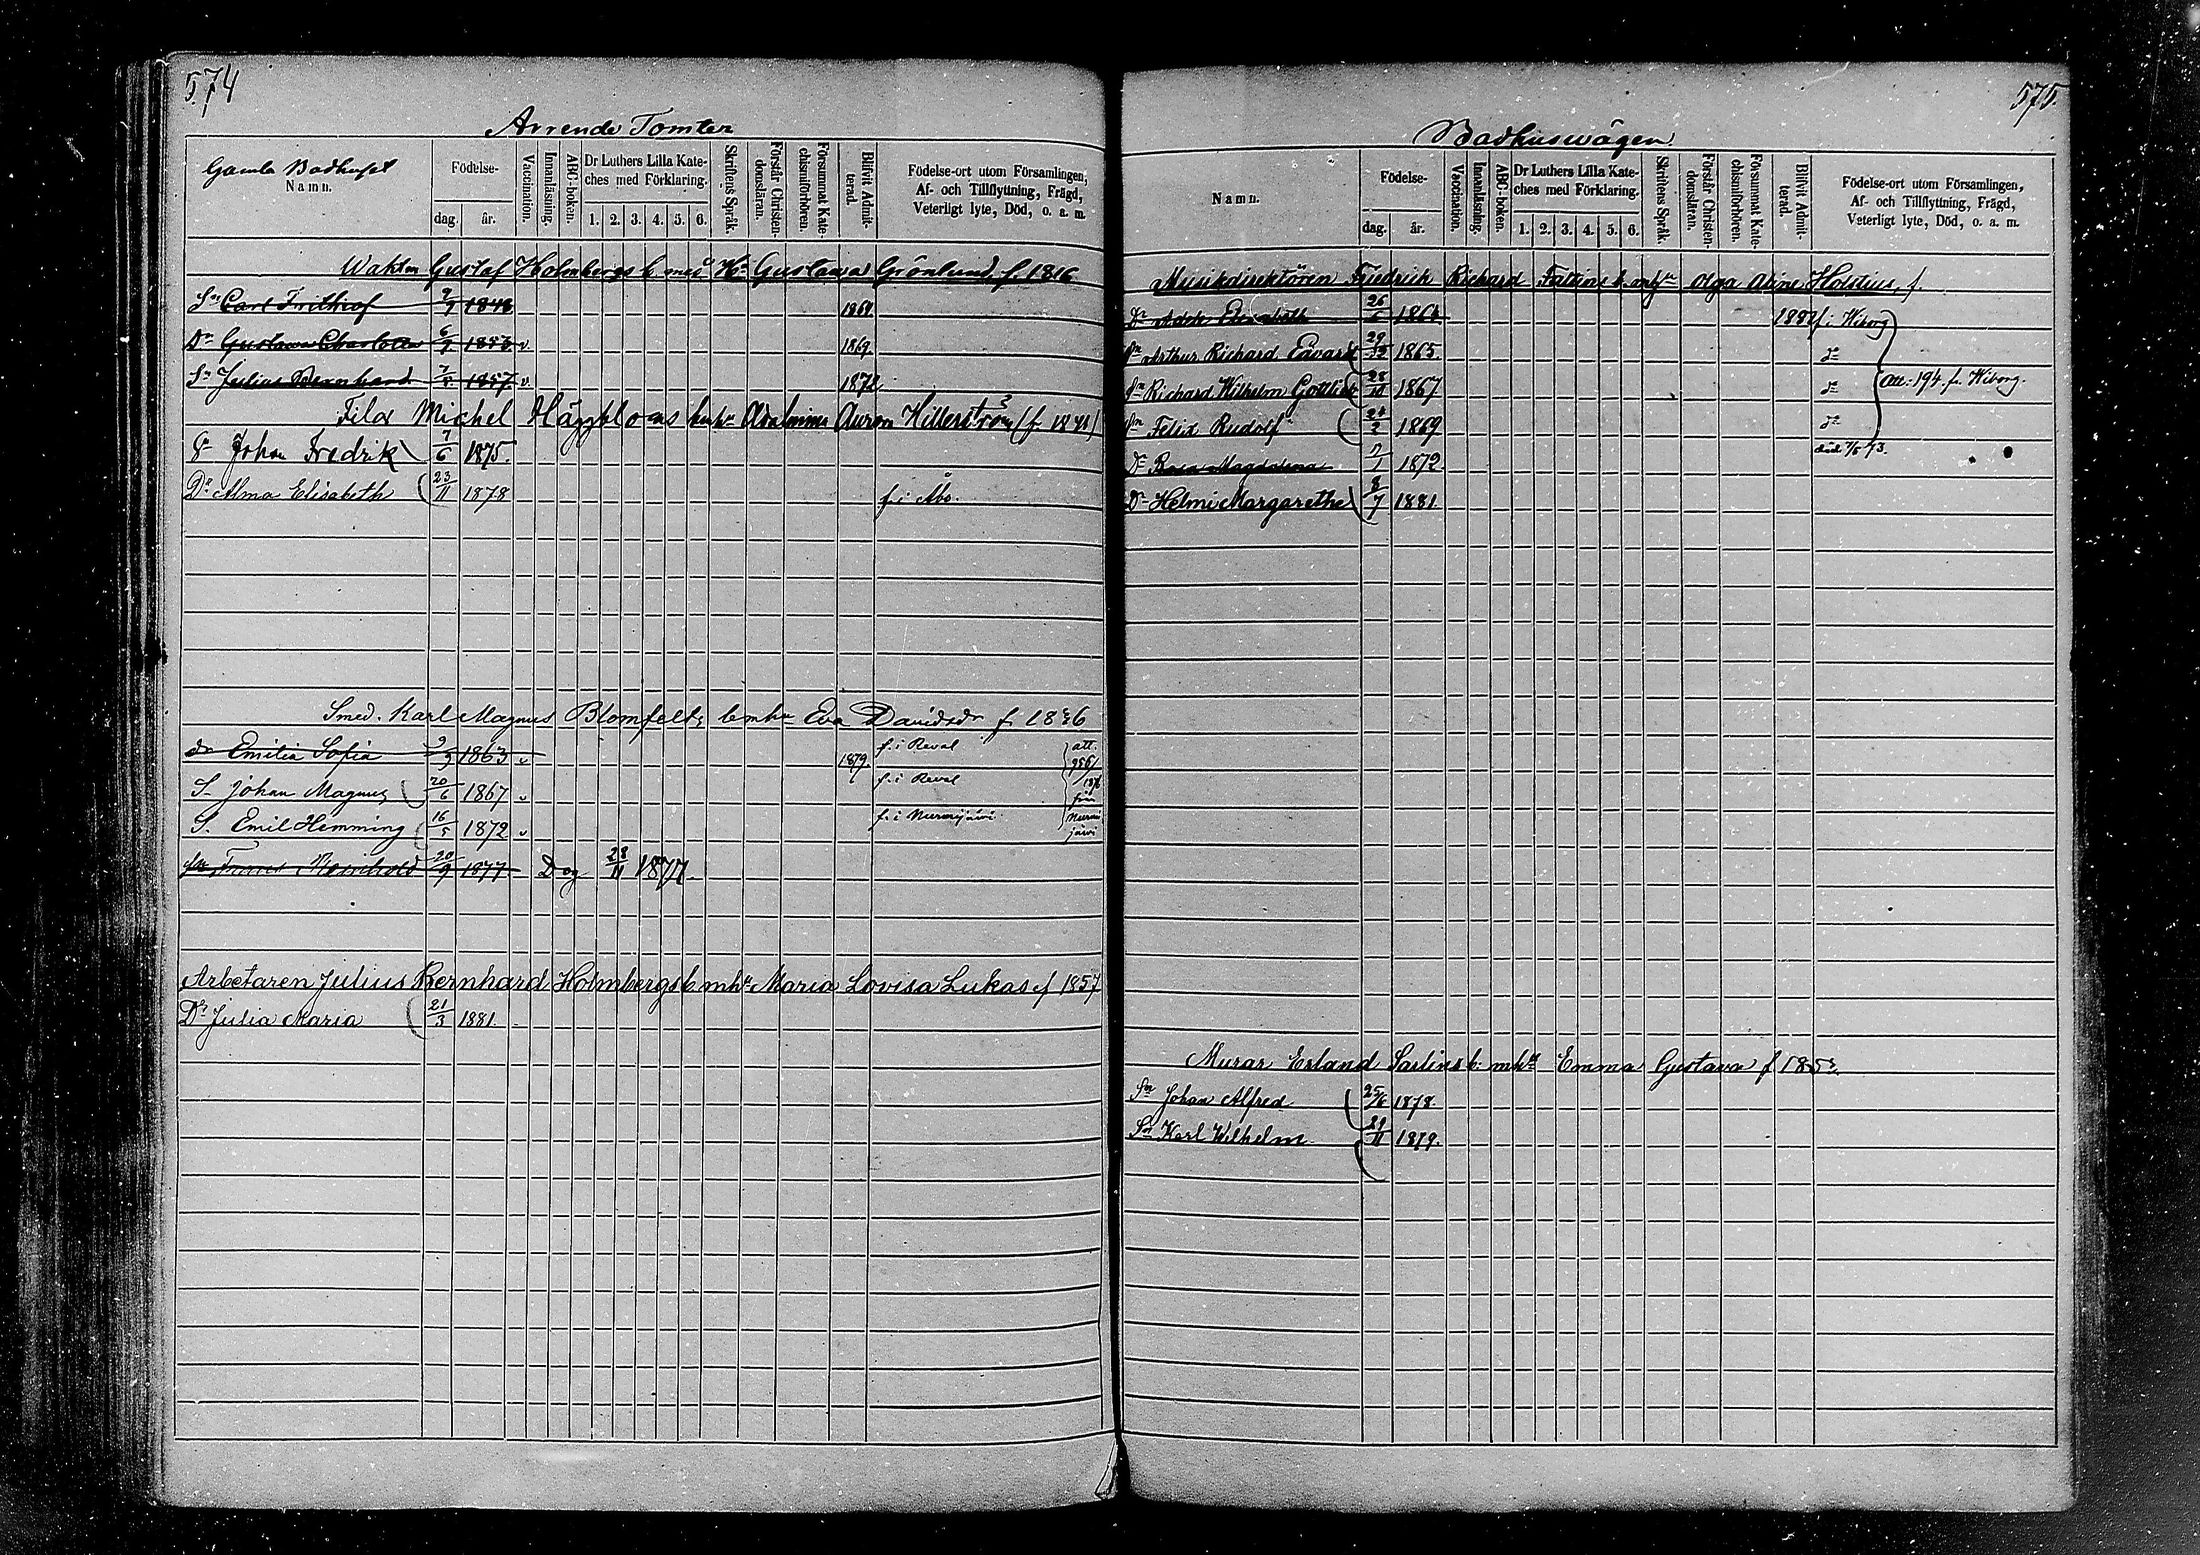 574
Arrende Tomter
Gamla Badhuset
Namn.
Födelse-
dag. år.
Vaccination.
Innanläsning.
ABC-boken.
Dr Luthers Lilla Kate-
ches med Förklaring.
1. 2. 3. 4. 5. 6.
Skriftens Språk.
Förstår Christen-
domsläran.
Försummat Kate-
chismiförhören.
Blifvit Admit-
terad.
Födelse-ort utom Församlingen,
Af- och Tillflyttning, Frägd,
Veterligt lyte, Död, o. a. m.
Waktm Gustaf Holmbergs b med H Gustava Grönlund f. 1816
Sn Carl Frithiof 9/9 1848 1864
Dr Gustava Charlotta 6/9 1853 v. 1869
Sn Julius Bernhard 7/8 1857 v. 1872
Michel Häggbloms Aurora Hillerström
Sn Johan Fredrik 7/6 1875.
Dr Alma Elisabeth 23/11 1878 f. i Åbo.
Smed. Karl Magnus Blomfelds b mhu Eva Davidsdr f 1836
dr Emilia Sofia 9/9 1863 v 1879 f. i Reval
S. Johan Magnus 20/6 1867 v f. i Reval
S. Emil Hemming 16/5 1872 v f. i Nurmijäwi
att.
956/
1876
från
Nurmi
järvi
sn Reinhold 20/9 1877 Dog 28/11 1877.
Arbetaren Julius Bernhard Holmbergs b mhu Maria Lovisa Lukas f 1857
Dr Julia Maria 21/3 1881.
575.
Badhuswägen
Namn.
Födelse-
dag. år.
Vaccination.
Innanläsning.
ABC-boken.
Dr Luthers Lilla Kate-
ches med Förklaring.
1. 2. 3. 4. 5. 6.
Skriftens Språk.
Förstår Christen-
domsläran.
Försummat Kate-
chismiförhören.
Blifvit Admit-
terad.
Födelse-ort utom Församlingen,
Af- och Tillflyttning, Frägd,
Veterligt lyte, Död, o. a. m.
Musikdirektören Friedrich Richard Faltins b. Olga Aline Holstius, f.
Dr Elisabeth 26/6 1864 1882 f. i Wiborg
Sn Arthur Richard Edvard 29/12 1865 do
Sn Richard Wilhelm Gottlieb 28/10 1867 do att. 194. fr. Wiborg.
Sn Felix Rudolf 24/2 1869 do
Dr Rosa Magdalena 7/1 1872 död 7/5 73.
Dr Helmi Margarethe 8/7 1881.
Murar Erland Sarlins b. mhu Emma Gustava f 185
Sn Johan Alfred 25/6 1878.
Sn Karl Wilhelm 29/11 1879.